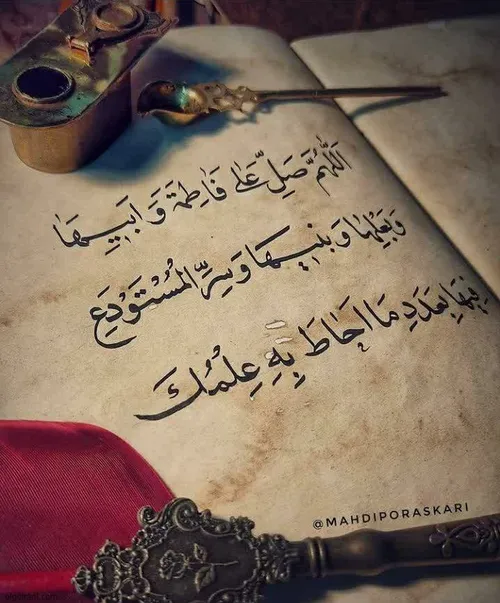 اَللّٰهُمَّ صَلِّ عَلٰی فَاطِمَةَ وَ اَبیٖهٰا
وَ بَعْلِهٰا وَ بَنیٖهٰا وَ سِرِّ الْمُسْتَوْدَعِ
فیٖهٰا بِعَدَدِ مٰا اَحٰاطَ بِهِ عِلْمُكَ
@MAHDIPORASKARI